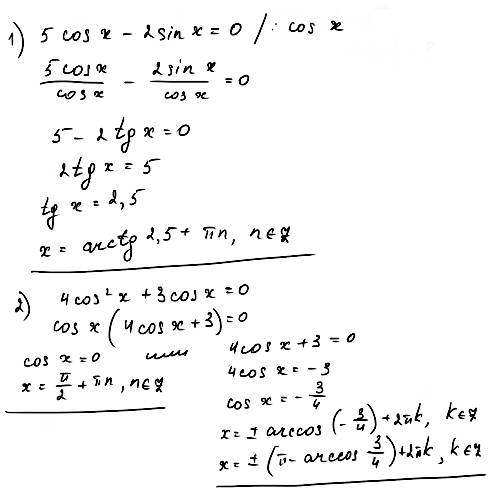 1) 5 cos x − 2 sin x = 0 / : cos x
5 cos x / cos x − 2 sin x / cos x = 0
5 − 2 tg x = 0
2 tg x = 5
tg x = 2,5
x = arctg 2,5 + πn, n ∈ Z
2) 4 cos² x + 3 cos x = 0
cos x (4 cos x + 3) = 0
cos x = 0 или 4 cos x + 3 = 0
x = π/2 + πn, n ∈ Z
4 cos x = − 3
cos x = − 3/4
x = ± arccos (− 3/4) + 2πk, k ∈ Z
x = ± (π − arccos 3/4) + 2πk, k ∈ Z